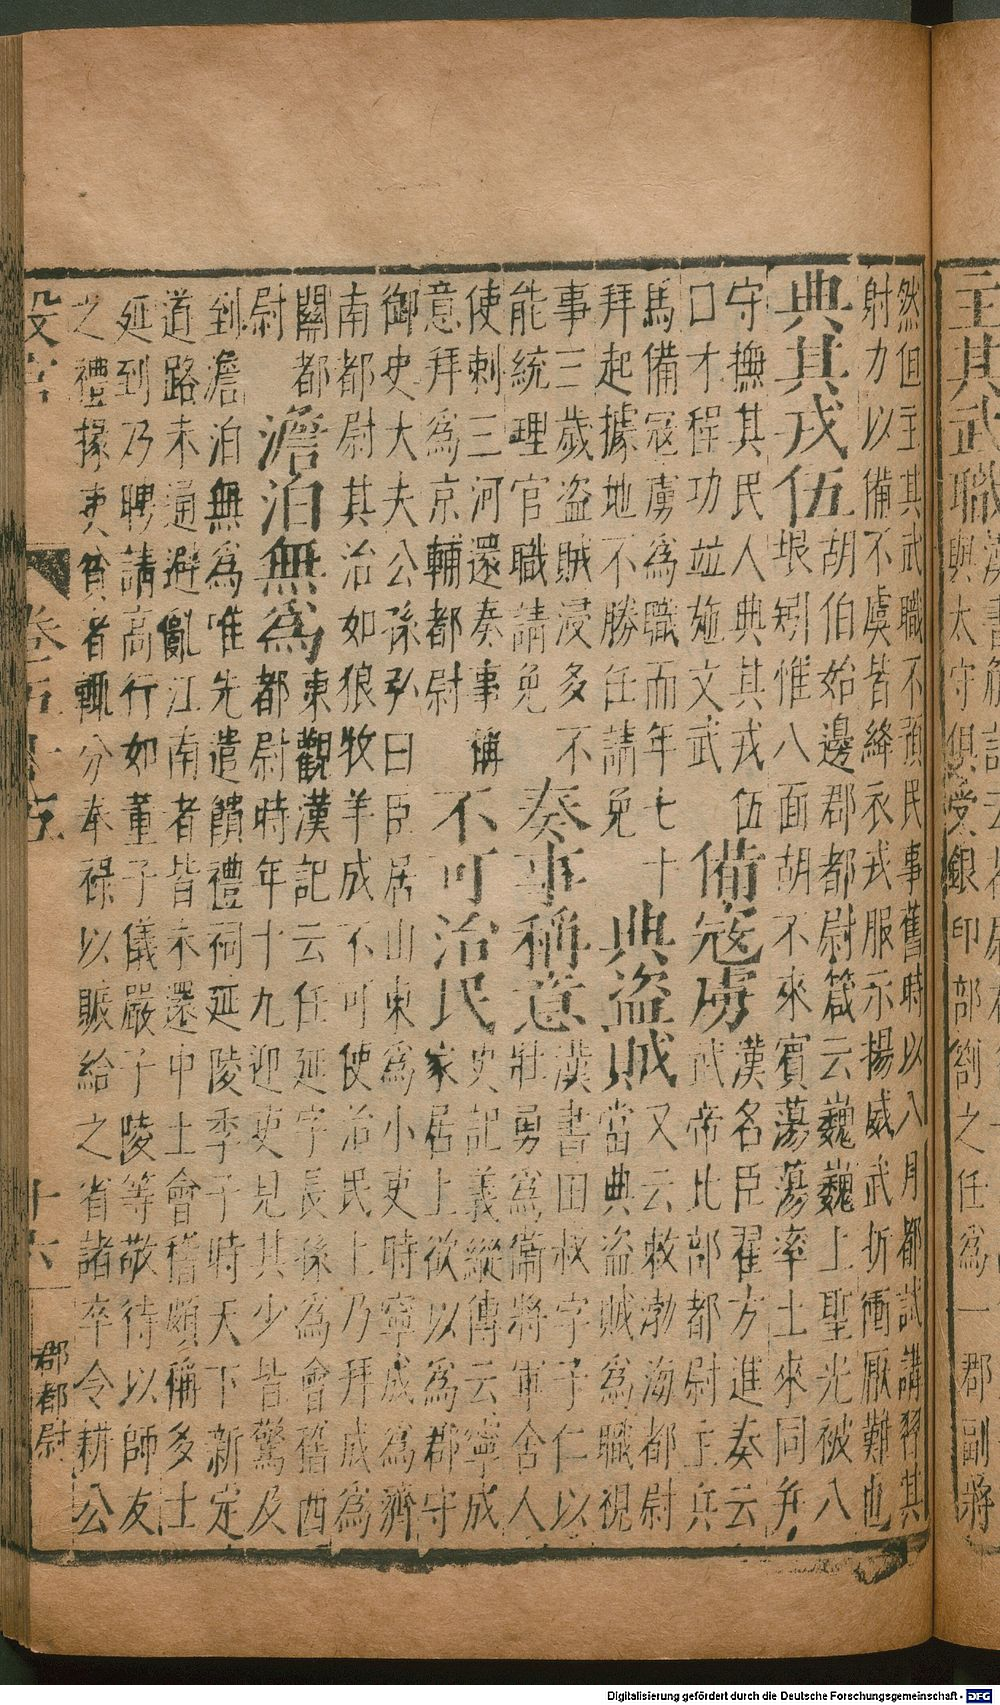 主其武職
與太守俱受銀印部符之任為一郡副將
然但主其武職不預民事舊時以八月都試講習其
射力以備不虞皆絳衣戎服示揚威武折衝厭難也
典其戎伍
胡伯始邊郡都尉箴云巍巍上聖光被八
垠矧惟八面胡不來賓蕩蕩率土來同弁
守撫其民人典其戎伍
口才程功竝施文武
備寇虜
漢名臣翟方進奏云
武帝比部都尉主兵
馬備寇虜為職而年七十
拜起據地不勝任請免
典盜賊
又云敕渤海都尉
當典盜賊為職視
事三歲盜賊浸多不
能統理官職請免
奏事稱意
漢書田叔字子仁以
壯勇為衛將軍舍人
使刺三河還奏事稱
意拜為京輔都尉
不可治民
史記義縱傳云寧成
家居上欲以為郡守
御史大夫公孫弘曰臣居山東為小吏時寧成為濟
南都尉其治如狼牧羊成不可使治民上乃拜成為
關都
尉
澹泊無為
東觀漢記云任延字長孫為會稽西
都尉時年十九迎吏見其少皆驚及
到澹泊無為唯先遣饋禮祠延陵季子時天下新定
道路未通避亂江南者皆未還中土會稽頗稱多士
延到乃聘請高行如董子儀嚴子陵等敬待以師友
之禮掾吏貧者輒分奉祿以賑給之省諸卒令耕公
設官
十六
郡都尉
Digitalisierung gefördert durch die Deutsche Forschungsgemeinschaft - DFG